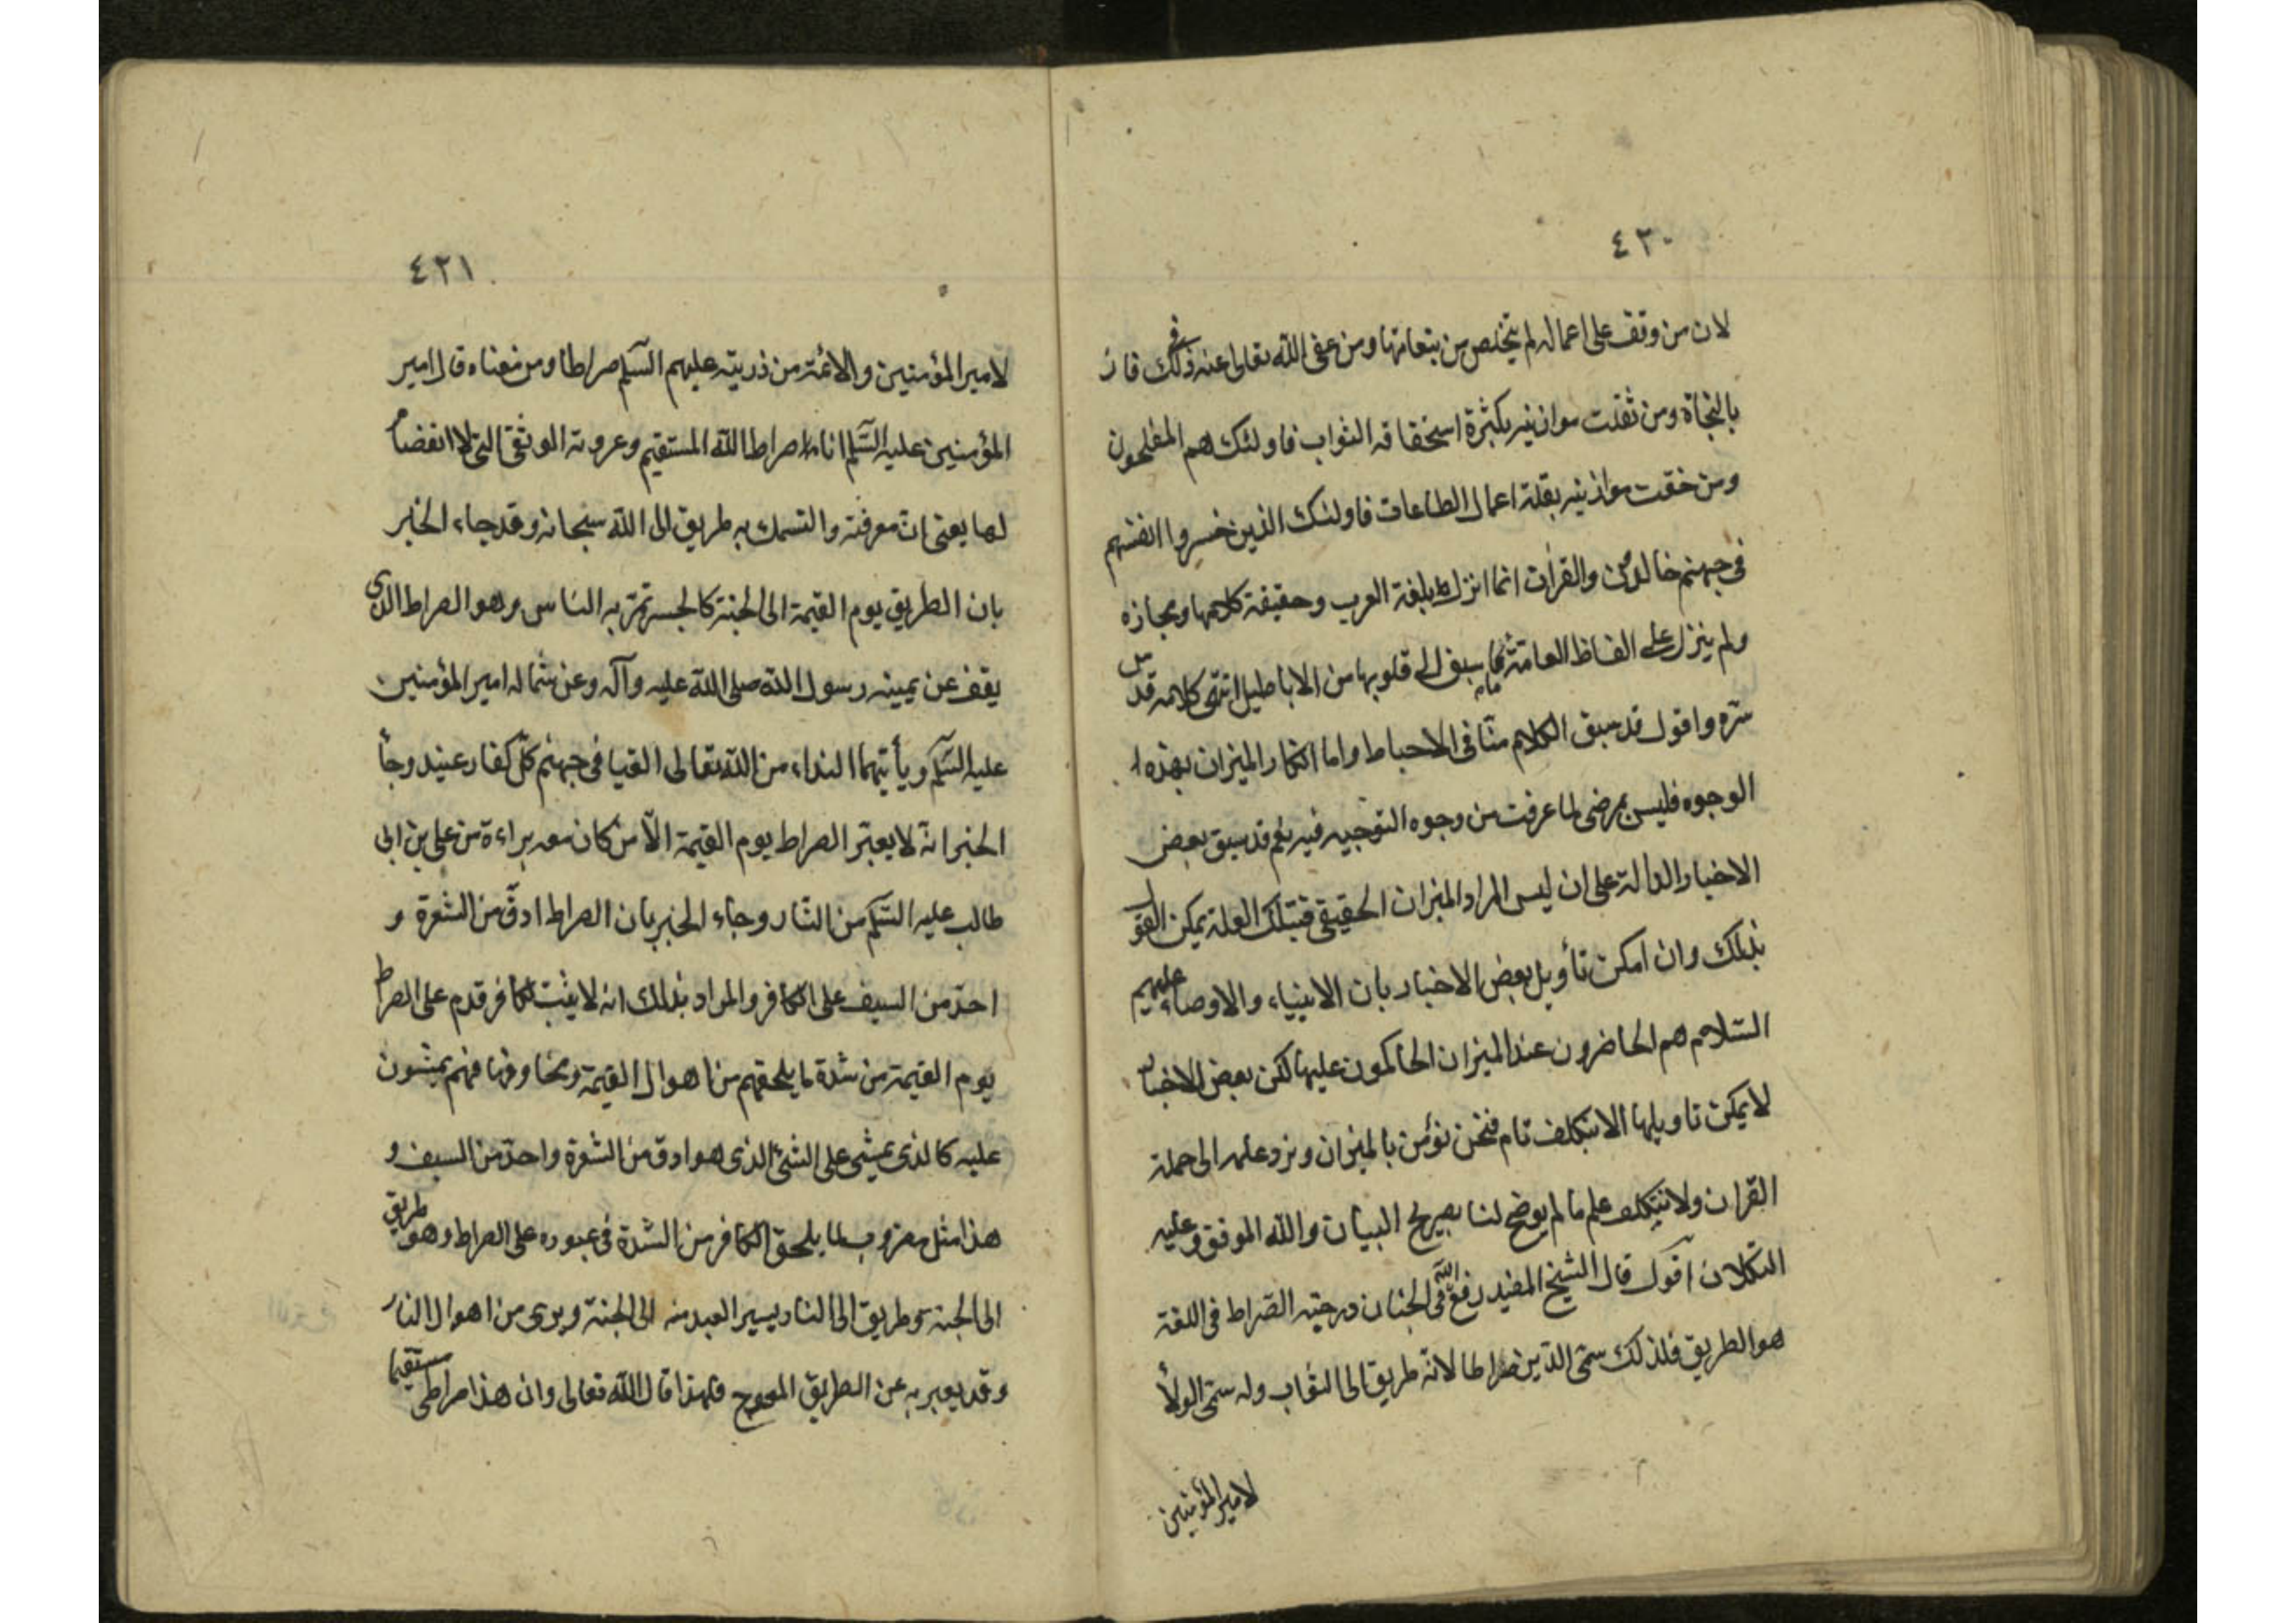 ٤٢٠
لان من وقف على اعماله لم يتخلص من تبعاتها ومن عفى الله تعالى عنه في ذلك فاز
بالنجاة ومن ثقلت موازينه بكثرة استحقاقه الثواب فاولئك هم المفلحون
ومن خفت موازينه بقلة اعمال الطاعات فاولئك الذين خسروا انفسهم
في جهنم خالدون والقران انما انزل بلغة العرب وحقيقة كلامها ومجازه
ولم ينزل على الفاظ العامة ثم ما سبق الى قلوبها من الاباطيل انتهى كلامه قدس
سره واقول قد سبق الكلام منا في الاحباط واما انكار الميزان بهذه
الوجوه فليس بمرضى لما عرفت من وجوه التوجيه فيه نعم قد سبق بعض
الاخبار الدالة على ان ليس المراد الميزان الحقيقى فبتلك العلة يمكن القول
بذلك وان امكن تأويل بعض الاخبار بان الانبياء والاوصياء عليهم
السلام هم الحاضرون عند الميزان الحاكمون عليها لكن بعض الاخبار
لا يمكن تاويلها الا بتكلف تام فنحن نؤمن بالميزان ونرد علمه الى حملة
القران ولا نتكلف علم ما لم يوضح لنا بصريح البيان والله الموفق وعليه
التكلان اقول قال الشيخ المفيد رفع الله فى الجنان درجته الصراط فى اللغة
هو الطريق فلذلك سمى الدين صراطا لانه طريق الى الثواب وله سمى الولأ
لامير المؤمنين
٤٢١
لامير المؤمنين والائمة من ذريته عليهم السلم صراطا ومن معناه قال امير
المؤمنين عليه السلم انا صراط الله المستقيم وعروته الوثقى التى لا انفصام
لها يعنى ان معرفته والتمسك به طريق الى الله سبحانه وقد جاء الخبر
بان الطريق يوم القيمة الى الجنة كالجسر تمر به الناس وهو الصراط الذى
يقف عن يمينه رسول الله صلى الله عليه وآله وعن شماله امير المؤمنين
عليه السلم ويأتيهما النداء من الله تعالى القيا فى جهنم كل كفار عنيد وجأ
الخبر انه لا يعبر الصراط يوم القيمة الا من كان معه براءة من على بن ابى
طالب عليه السلم من النار وجاء الخبر بان الصراط ادق من الشعرة و
احد من السيف على الكافر والمراد بذلك انه لا يثبت لكافر قدم على الصراط
يوم القيمة من شدة ما يلحقهم من اهوال القيمة ومخاوفها فهم يمشون
عليه كالذى يمشى على الشئ الذى هو ادق من الشعرة واحد من السيف و
هذا مثل مضروب لما يلحق الكافر من الشدة فى عبوره على الصراط وهو طريق
الى الجنة وطريق الى النار يسير العبد منه الى الجنة ويرى من اهوال النار
وقد يعبر به عن الطريق المعوج فلهذا قال الله تعالى وان هذا صراطى مستقيما